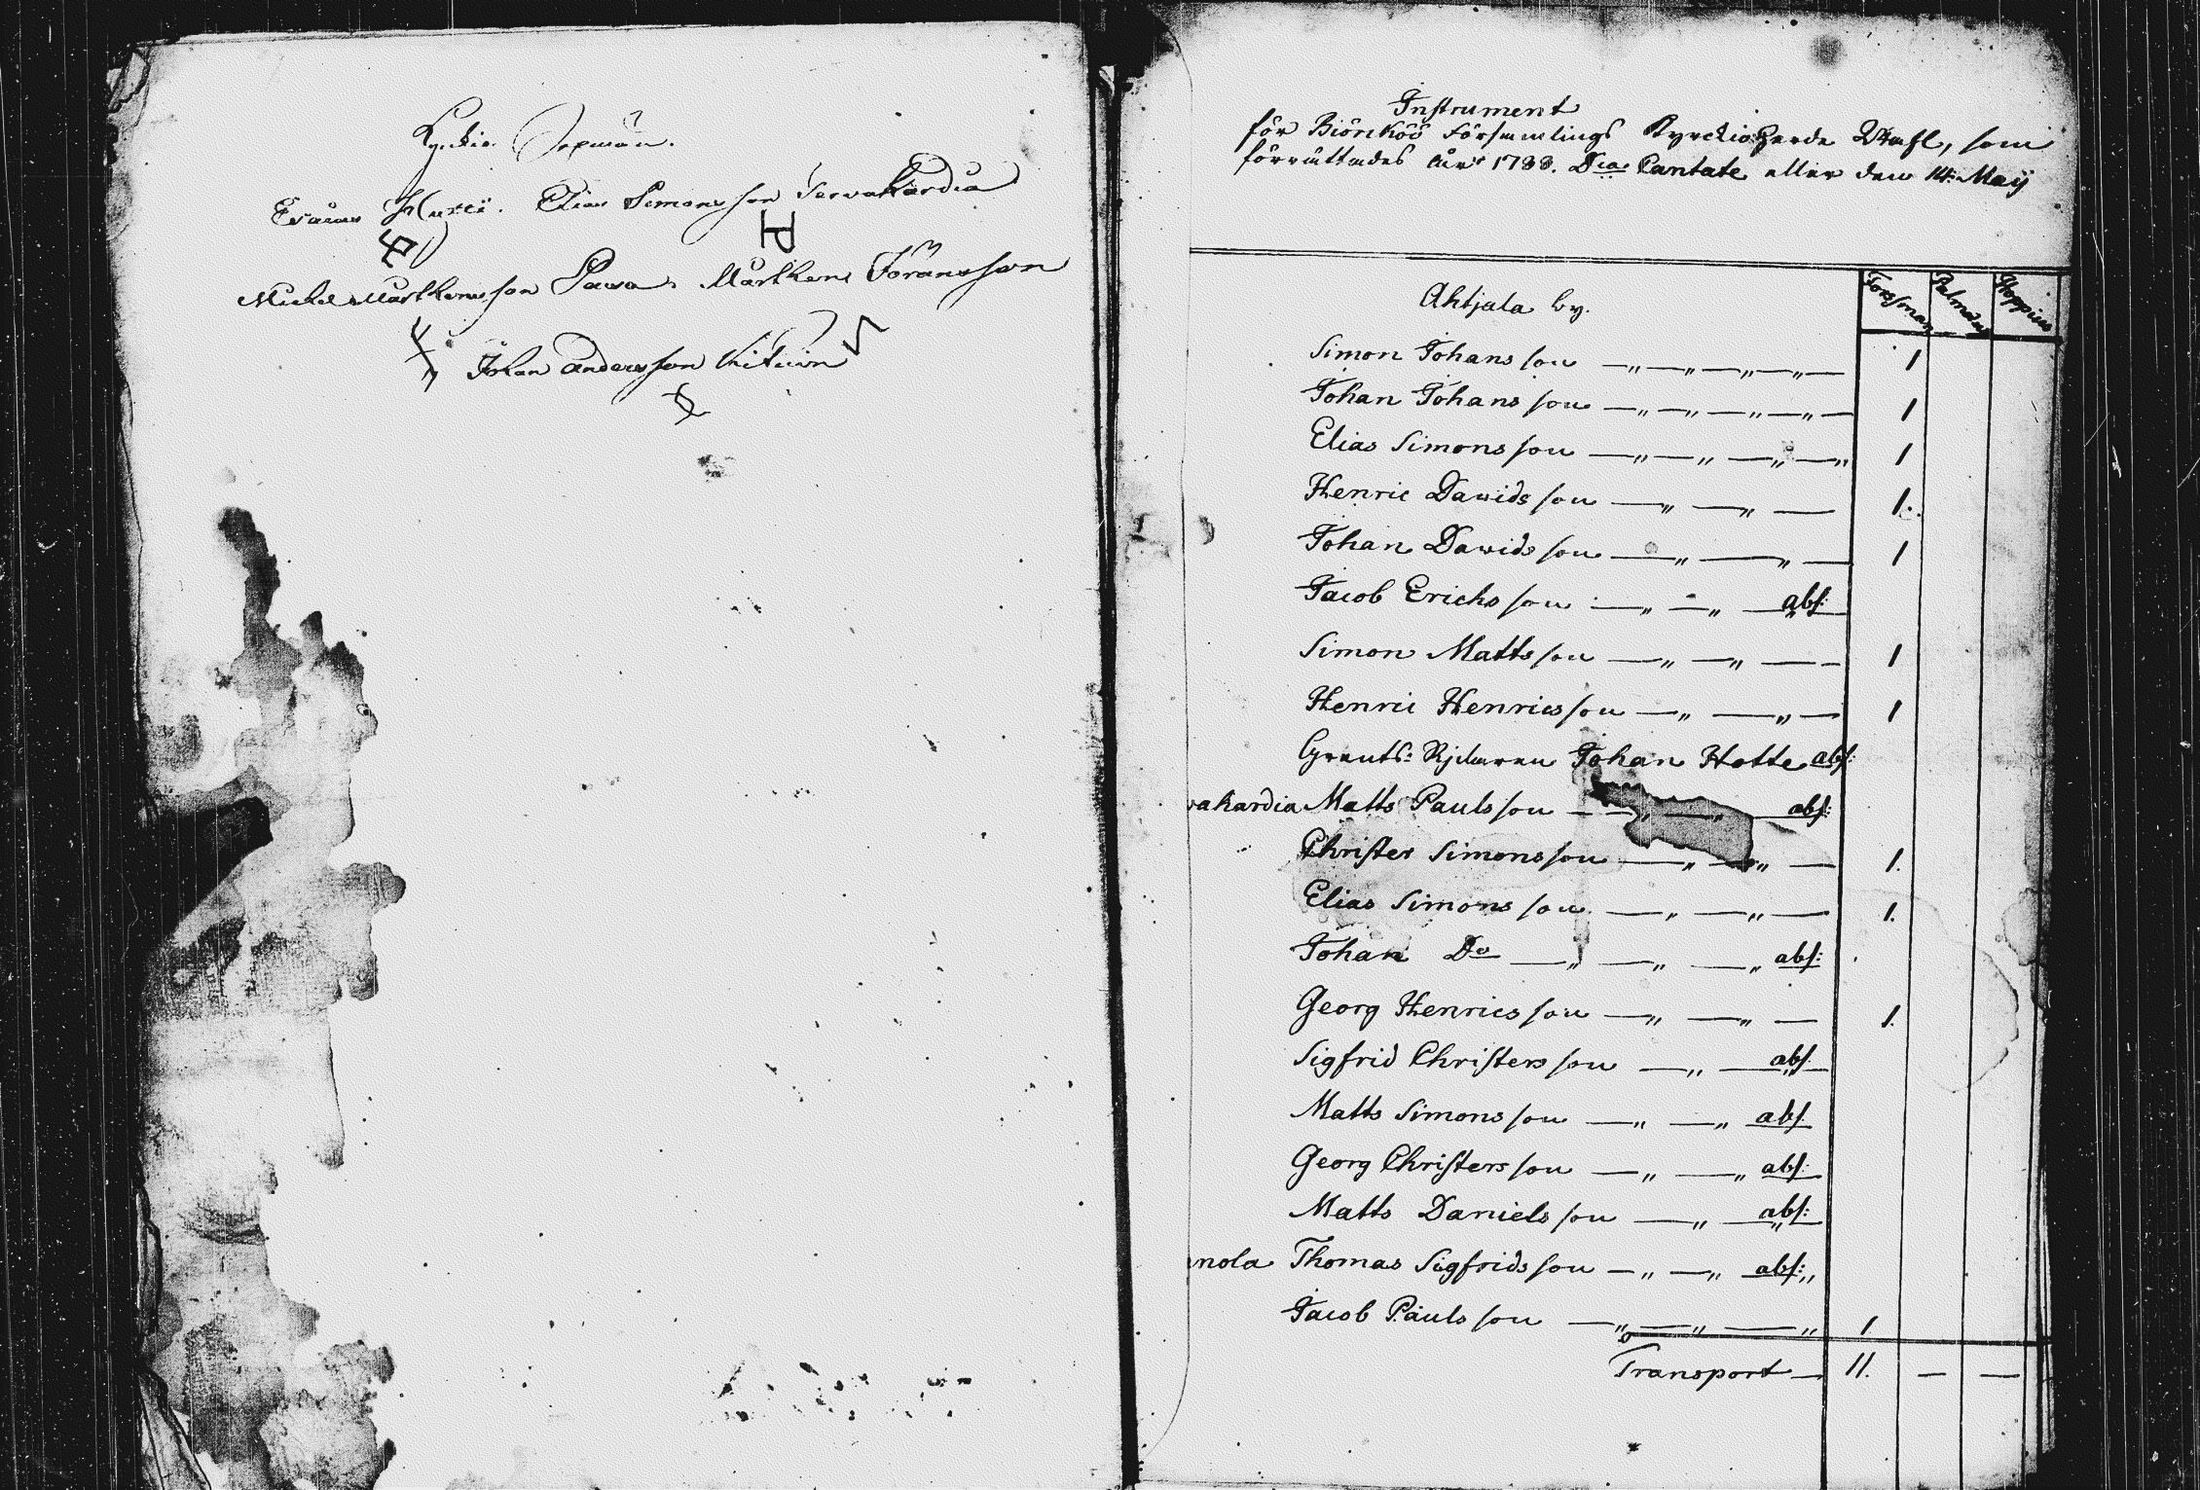 Kyrckio
Elias Simonsson Servakardia
Michel Mårthensson Mårthen Jöransson
Johan Andersson
Instrument
för Biörcköö Församlings Kyrckio Herde Wahl, som
förrättades året 1788. Dca Cantate eller den 14. Maij
Forssman Palmæus Hoppius
Ahtjala by.
Simon Johansson —„—„—„—„— 1
Johan Johansson —„—„—„—„— 1
Elias Simonsson —„—„—„—„ 1
Henric Davidsson —„—„— 1.
Johan Davidsson —„—„— 1
Jacob Erichsson —„—„ abs:
Simon Mattsson —„—„—— 1
Henric Henricsson —„—„— 1
Johan Hotte abs:
vakardia Matts Paulsson ——„—„ abs:
Christer Simonsson —„—„— 1.
Elias Simonsson —„—„— 1.
Johan Do —„—„—„ abs:
Georg Henricsson —„—„— 1.
Sigfrid Christersson —„— abs:
Matts Simonsson —„—„ abs:
Georg Christersson —„—„ abs:
Matts Danielsson —„— abs:
nola Thomas Sigfridsson —„—„ abs:„
Jacob Paulsson —„—„—„ 1
Transport — 11. — —